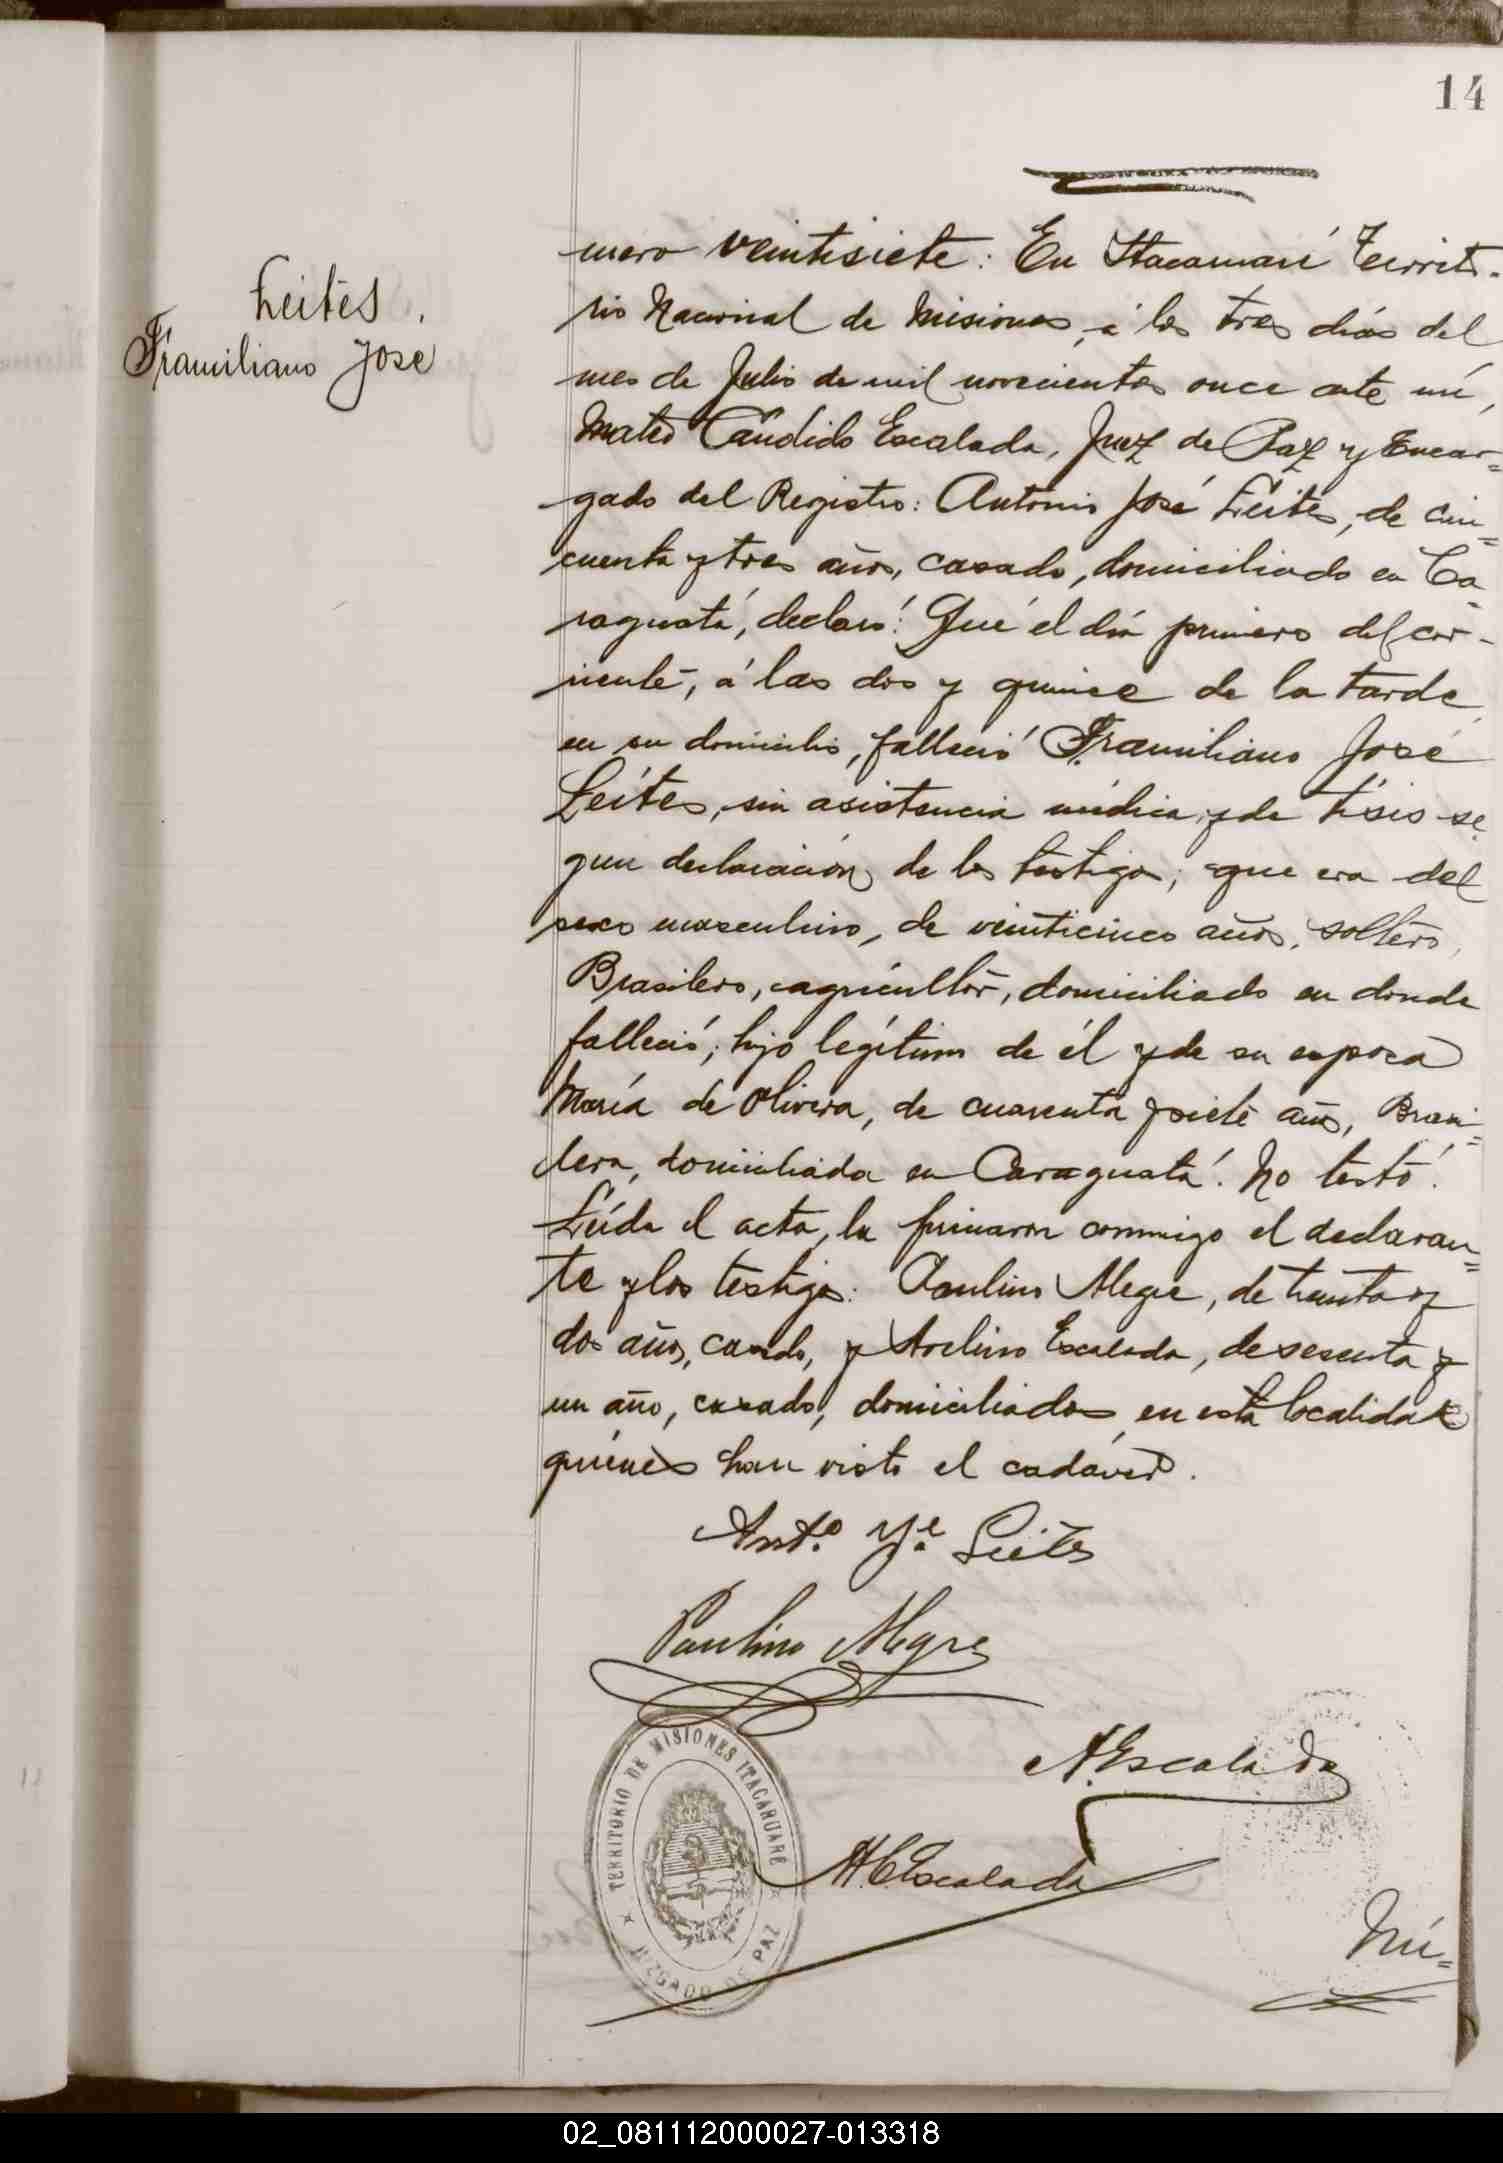 14
Leites.
Framiliano José
mero veintisiete: En Itacaruaré Territo-
rio Nacional de Misiones, á los tres días del
mes de Julio de mil novecientos once ante mí,
Mateo Cándido Escalada, Juez de Paz y Encar=
gado del Registro: Antonio José Leites, de cin=
cuenta y tres años, casado, domiciliado en Ca=
raguatá, declaró: Que el día primero del cor-
riente, á las dos y quince de la tarde,
en su domicilio, falleció Framiliano José
Leites, sin asistencia médica, y de tisis se-
gun declaración de los testigos; que era del
sexo masculino, de veinticinco años, soltero,
Brasilero, agricultor, domiciliado en donde
falleció; hijo legítimo de él y de su esposa
María de Olivera, de cuarenta y siete años, Brasi=
lera, domiciliada en Caraguatá. No testó.
Leída el acta, la firmaron conmigo el declaran=
te y los testigos: Paulino Alegre, de treinta y
dos años, casado, y Avelino Escalada, de sesenta y
un año, casado, domiciliados en esta localidad
quienes han visto el cadáver.
Ant.o J.e Leites
Paulino Alegre
A. Escalada
M C Escalada
TERRITORIO DE MISIONES ITACARUARE
JUZGADO DE PAZ
Nú=
02_081112000027-013318